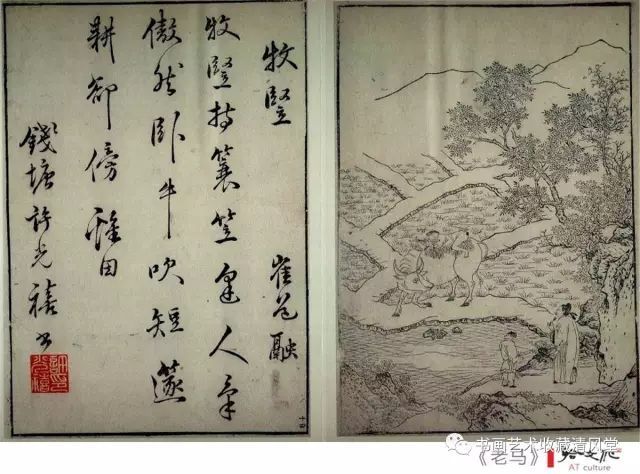 牧豎 崔道融
牧豎持蓑笠逢人氣
傲然卧牛吹短篴
耕卻傍溪田
錢塘許光禧書
书画艺术收藏清风堂
《老马》
AT culture